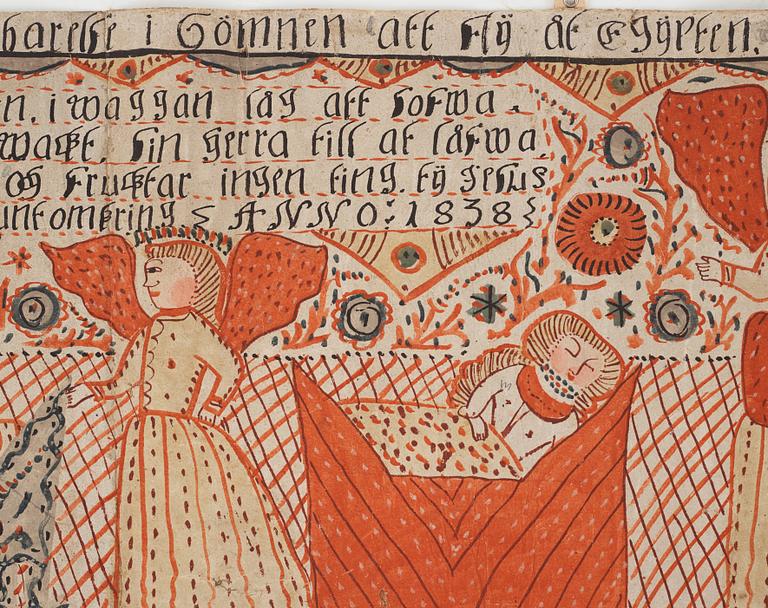 i Sömnen att fly åt Egypten.
i waggan låg att sofwa.
Sin Herra till at låfwa.
og Frucktar ingen ting. ty Jesus
untomkring ANNO: 1838